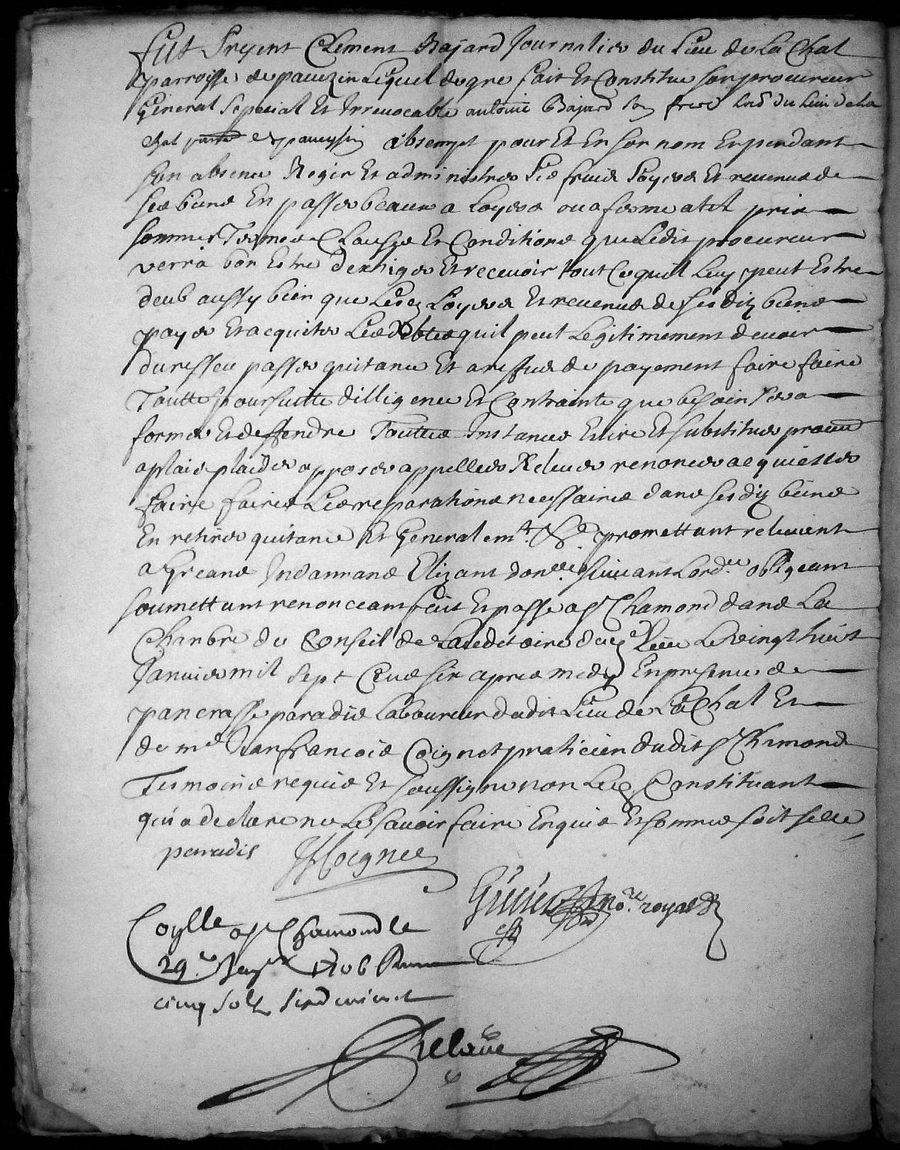 fut present Clement Bajard Journalier du Lieu de La Chal
parroisse de pavezin Lequel de gre fait et Constitue son procureur
General sepecial et Irrevocable antoine Bajard son frere du Lieu de la
chal pavezin absempt pour et En son nom Et pendant
son absence Regir Et administrer ses fruis Loyers Et revenus de
ses biens En passer beaux a Loyers ou a ferme a tel prix
sommes Termes Clauses Et Conditions que Ledit procureur
verra bon Estre d'exiger Et recevoir tout Ce quil Luy peut Estre
deub aussy bien que Lesd Loyers Et revenus de sesdits biens
payer Et acquiter Les debtes quil peut Legitimement devoir
du resseu passer quitance Et a reffus de payement faire faire
Toutte poursuitte dilligence Et Contrainte que besoin sera
former Et deffendre Touttes Instances Eslire Et substituer procur
a plais plaider apposer appeller Relever renoncer acquiesser
faire faire Les resparations necessaires dans sesdits biens
En retirer quitance Et Generalemt &c promettant relevant
Elizant suivant Lord obligeant
soumettant renonceant fait Et passe a St Chamond dans La
Chambre du Conseil de Lauditoire dud Lieu Le vingt huit
Janvier mil sept Cens six apres midy En presence de
pancrasse paradis Laboureur dudit Lieu de La Chal Et
de me Jean francois Coignet praticien dudit St Chamond
Tesmoins requis Et soussignes non Led Constituant
qui a declare ne Le savoir faire Enquis Et somme soit selle
paradis JF Coignet
no.re royal
Coylle a St Chamond le
29e Janvr 1706 Receu
cinq solz six deniers